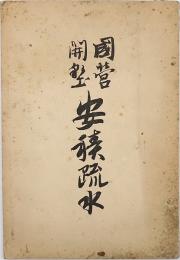 國営
開墾
安積疏水